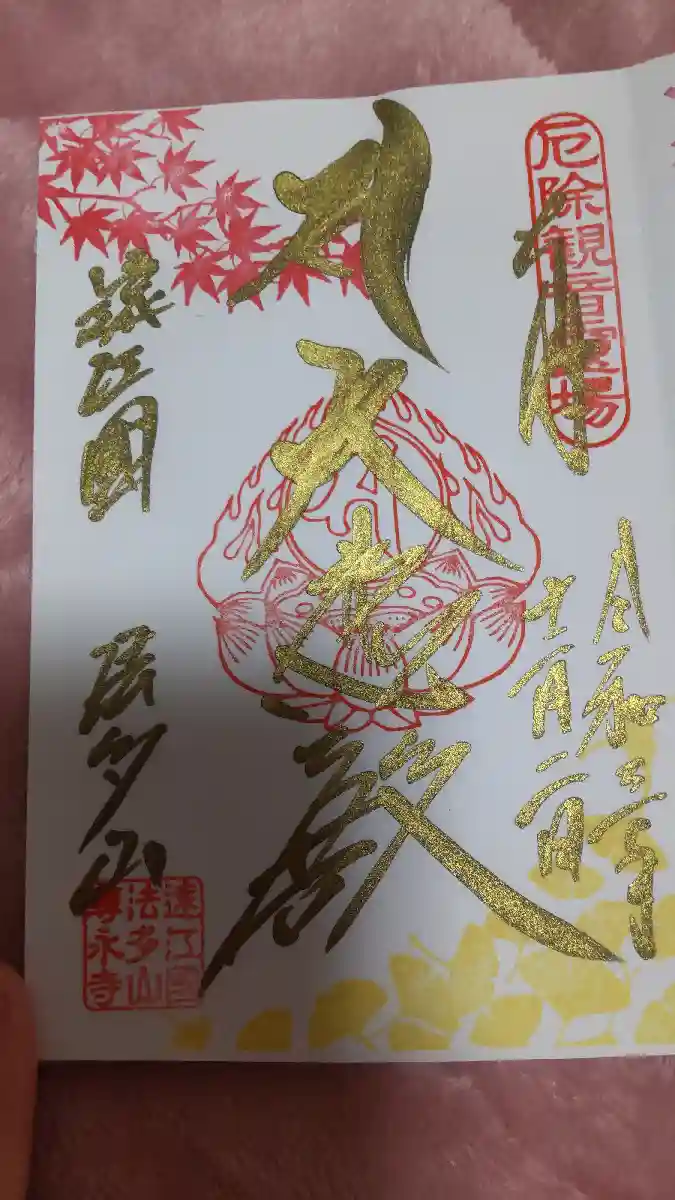 厄除観音霊場
奉拝
令和三年
十一月二日
大悲殿
遠江國
法多山
遠江国
法多山
尊永寺